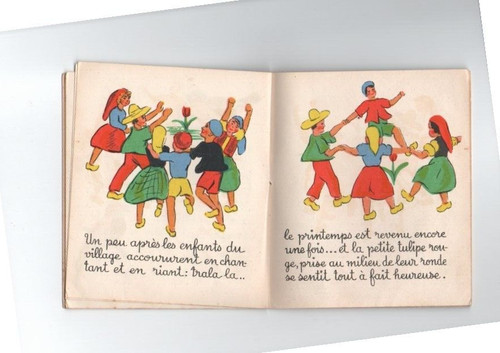 Un peu après les enfants du
village accoururent en chan-
tant et en riant: trala la...
le printemps est revenu encore
une fois... et la petite tulipe rou-
ge, prise au milieu de leur ronde
se sentit tout à fait heureuse.